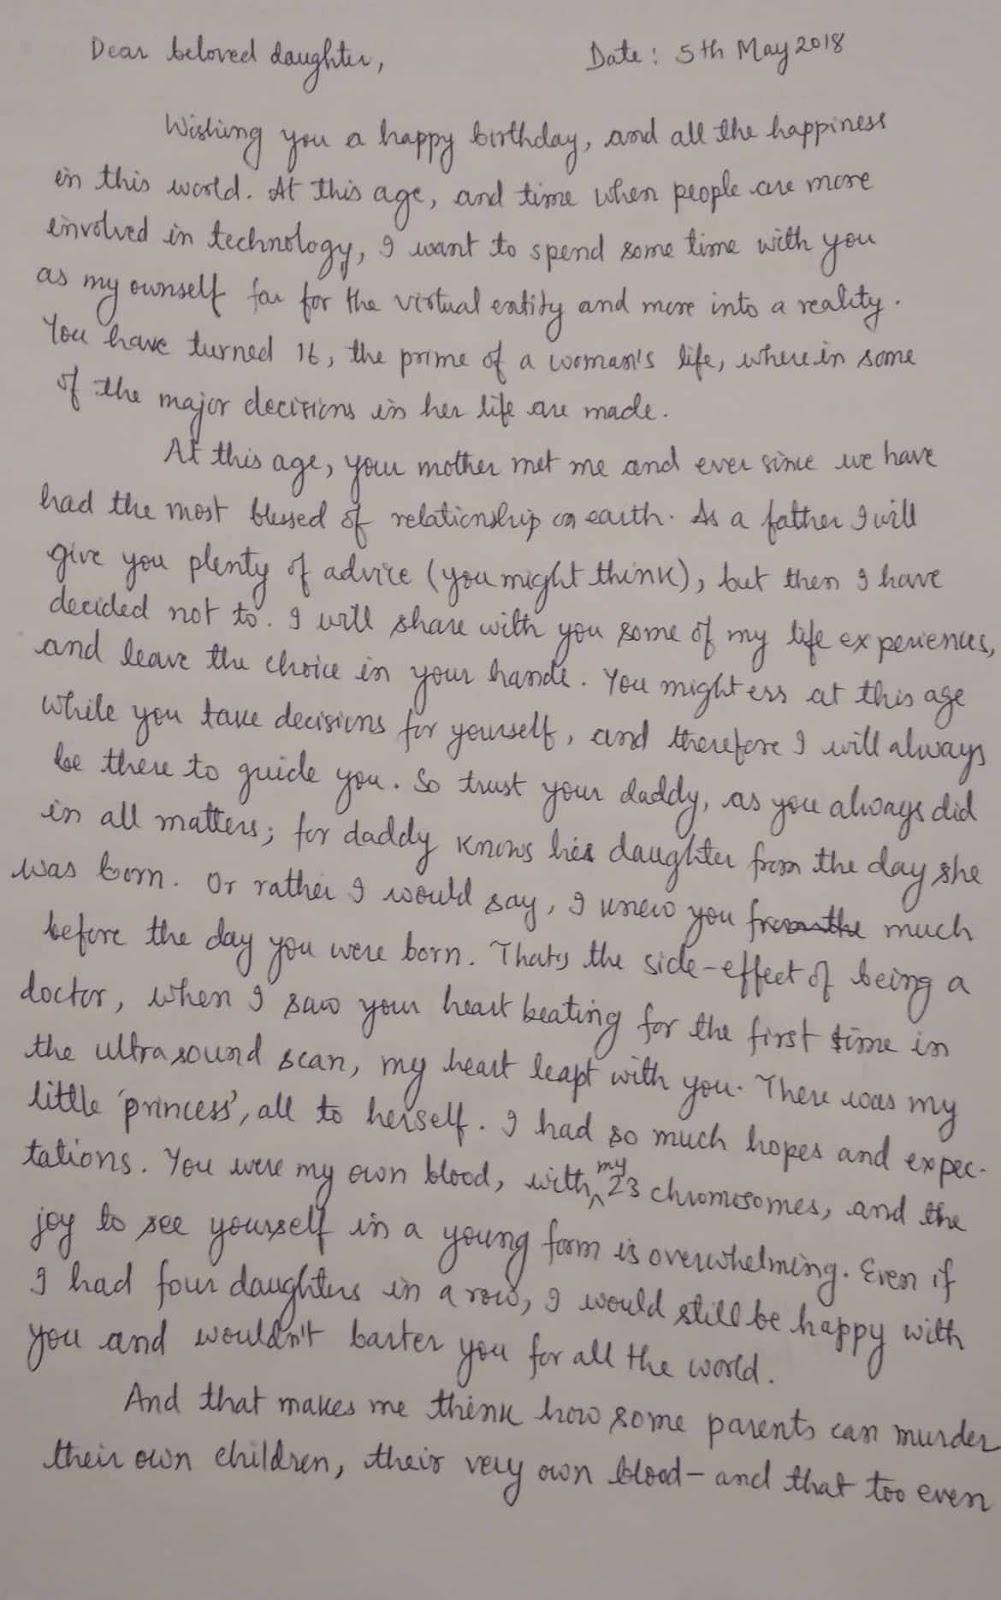 Dear beloved daughter,
Date: 5th May 2018
Wishing you a happy birthday, and all the happiness
in this world. At this age, and time when people are more
involved in technology, I want to spend some time with you
as my ownself far for the virtual entity and more into a reality.
You have turned 16, the prime of a woman's life, wherein some
of the major decisions in her life are made.
At this age, your mother met me and ever since we have
had the most blessed of relationship on earth. As a father I will
give you plenty of advice (you might think), but then I have
decided not to. I will share with you some of my life experiences,
and leave the choice in your hands. You might ess at this age
while you take decisions for yourself, and therefore I will always
be there to guide you. So trust your daddy, as you always did
in all matters; for daddy knows his daughter from the day she
was born. Or rather I would say, I knew you from the much
before the day you were born. Thats the side-effect of being a
doctor, when I saw your heart beating for the first time in
the ultrasound scan, my heart leapt with you. There was my
little 'princess', all to herself. I had so much hopes and expec-
tations. You were my own blood, with my 23 chromosomes, and the
joy to see yourself in a young form is overwhelming. Even if
I had four daughters in a row, I would still be happy with
you and wouldn't barter you for all the world.
And that makes me think how some parents can murder
their own children, their very own blood- and that too even